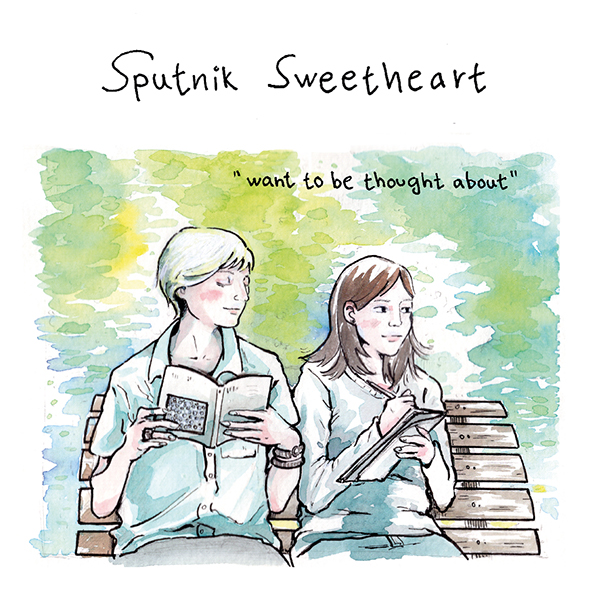 Sputnik Sweetheart
"want to be thought about"